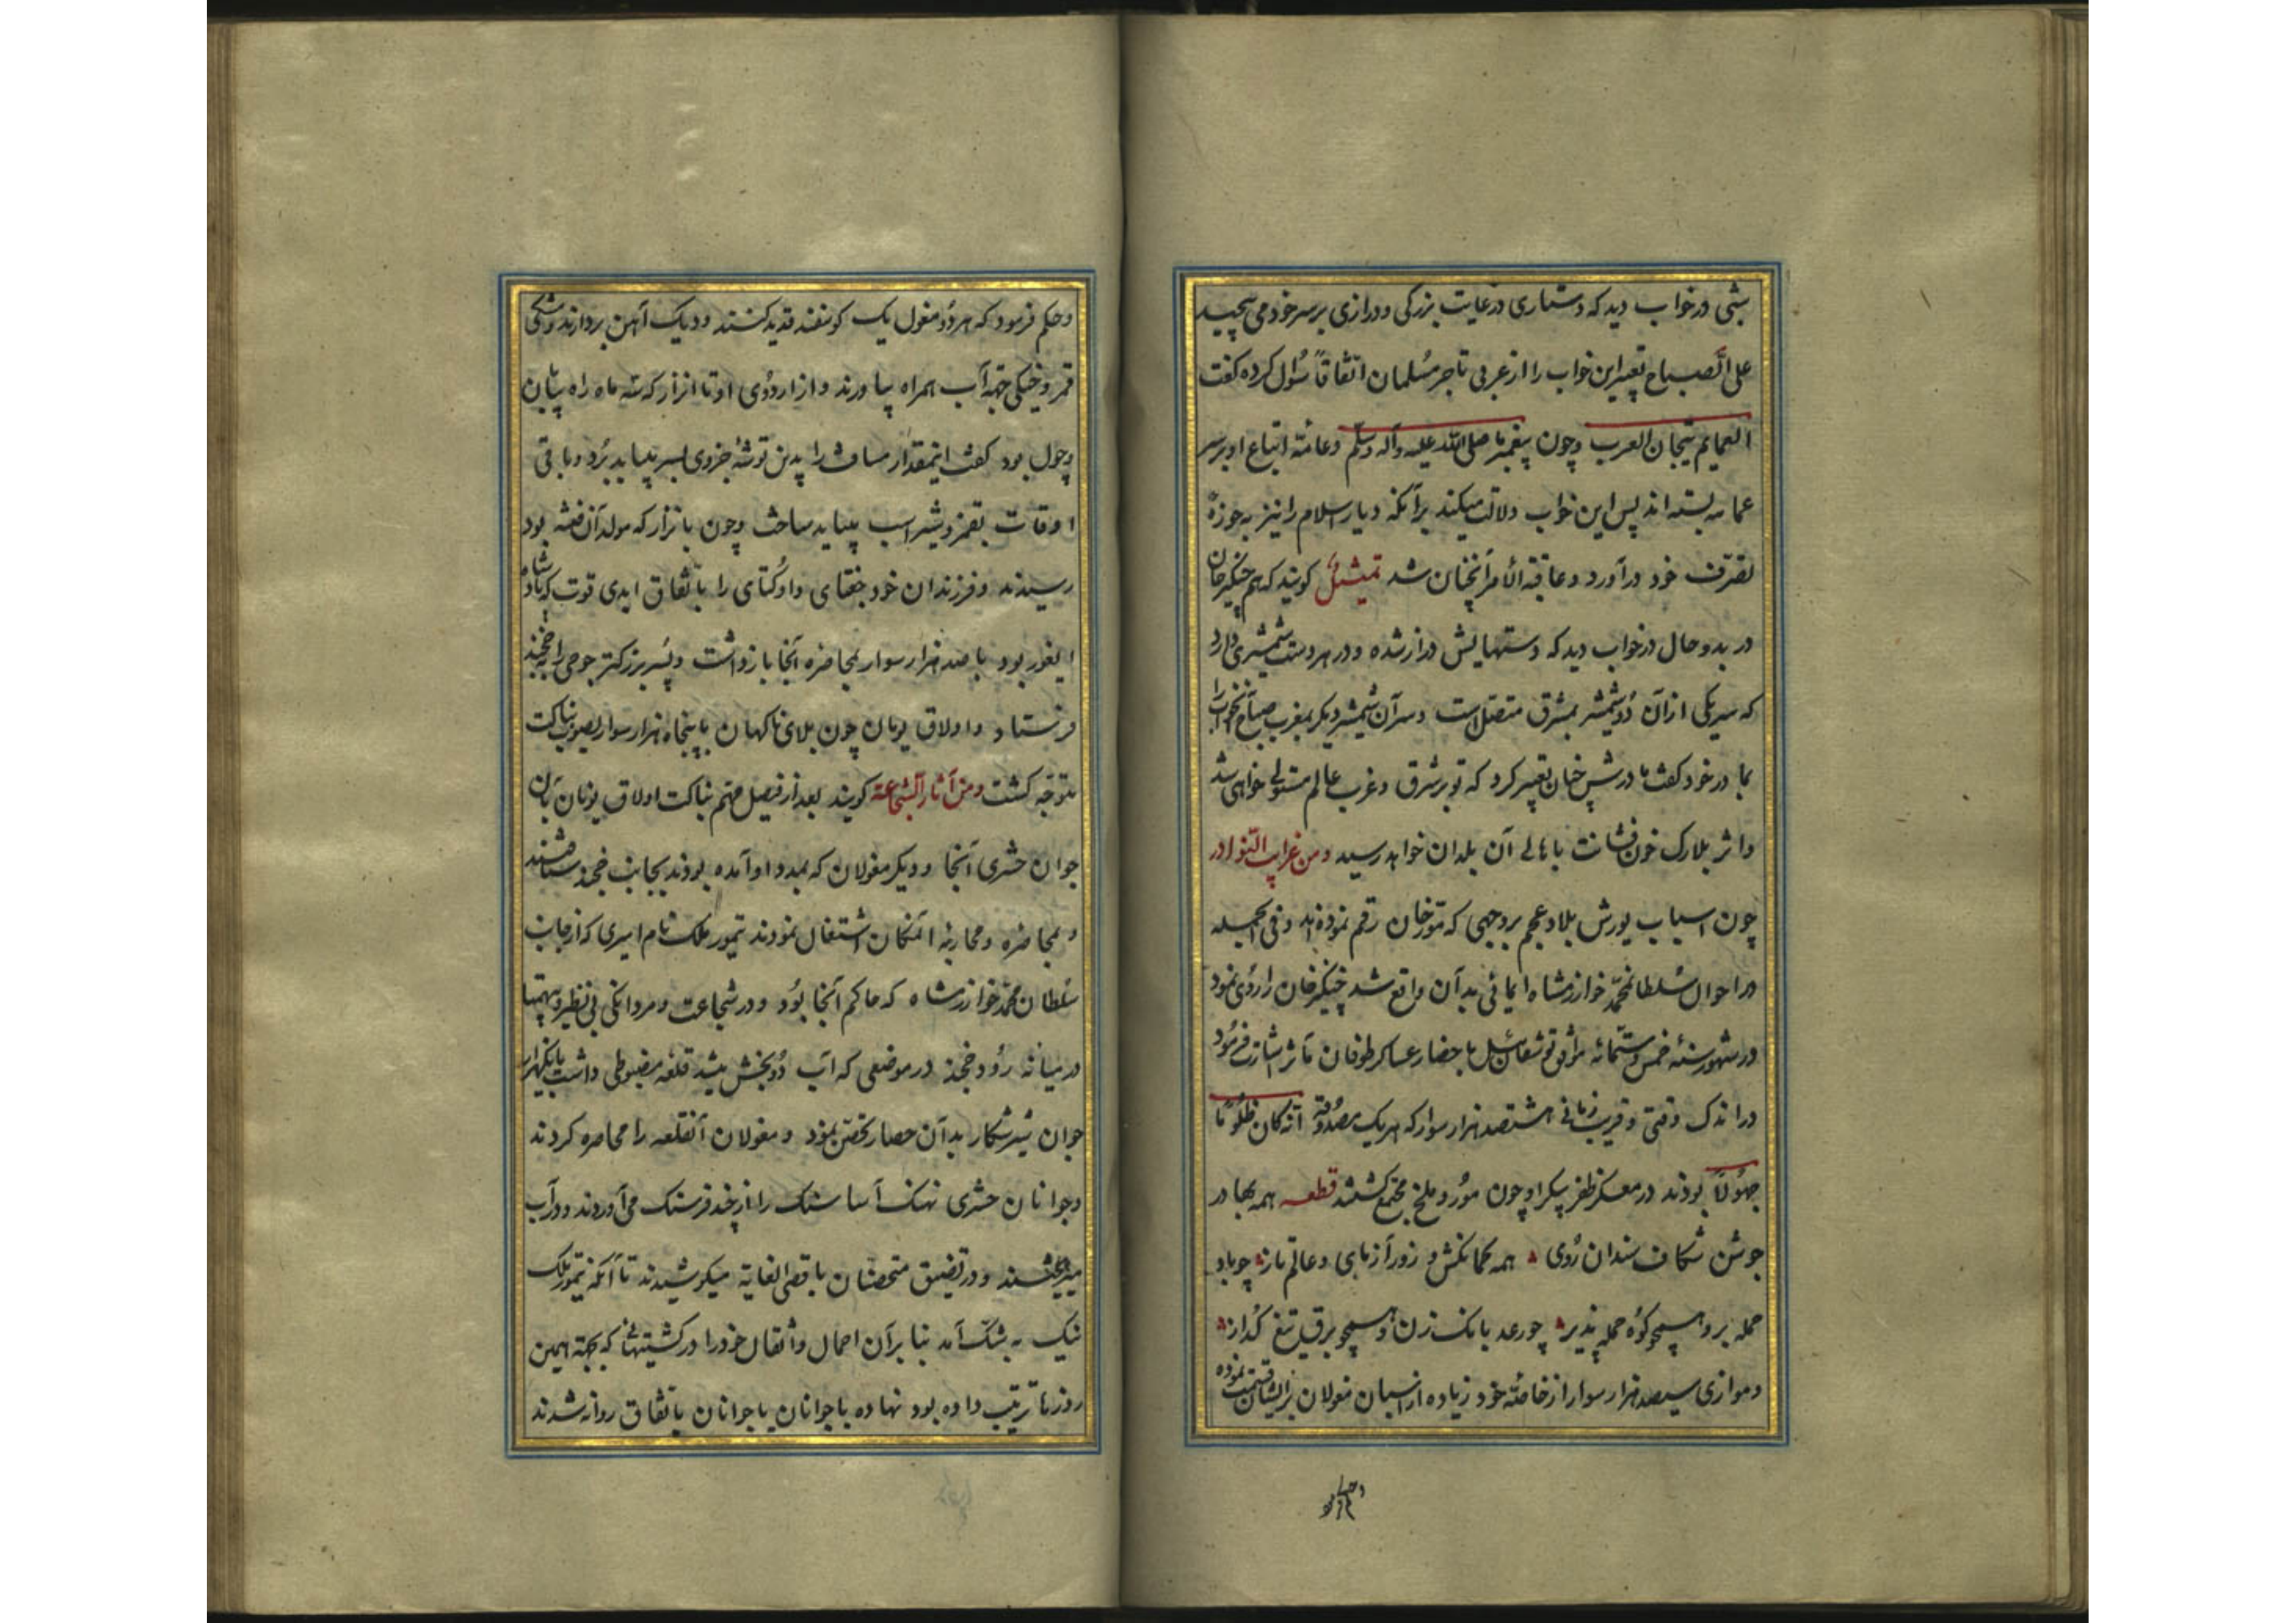 شبی در خواب دید که دستاری در غایت بزرگی و درازی بر سر خود می پیچید
علی الصباح تعبیر این خواب را از عربی تاجر مسلمان اتفاقاً سؤال کرده گفت
العمایم تیجان العرب و چون پیغمبر ما صلی الله علیه وآله وسلم و عامّه اتباع او بر سر
عمامه بسته اند پس این خواب دلالت میکند بر آنکه دیار اسلام را نیز به حوزهٔ
تصرف خود درآورد و عاقبة الامر آنچنان شد تمثیل کویند که هم چنکیز خان
در بدو حال در خواب دید که دستهایش دراز شده و در هر دست شمشیری دارد
که سر یکی از آن دو شمشیر بمشرق متصل است و سر آن شمشیر دیکر بمغرب صباح آنخواب را
با مادر خود کفت مادرش چنان تعبیر کرد که تو بر شرق و غرب عالم مستولی خواهی شد
و اثر بلارک خون فشانت باهالی آن بلدان خواهد رسید ومن غرایب النوادر
چون اسباب یورش بلاد عجم بر وجهی که مورخان رقم نموده اند و فی الجمله
در احوال سلطان محمد خوارزمشاه ایمائی بدان واقع شد چنکیز خان را روی نمود
در شهور سنهٔ خمس و ستمائه موافق توشقان ئیل باحضار عساکر طوفان مآثر اشارت فرمود
در اندک وقتی و قریب زمانی هشتصد هزار سوار که هریک مصدوقهٔ انه کان ظلوماً
جهولاً بودند در معسکر ظفر پیکر او چون مور و ملخ مجتمع کشتند قطعه همه بهادر
جوشن شکاف سندان روی همه کمانکش و زورآزمای و عالم تاز چو باد
حمله بر و همچو کوه حمله پذیر چو رعد بانک زن و همچو برق تیغ کداز
و موازی سیصد هزار سوار از خاصه خود زیاده از اسبان مغولان بر ایشان قسمت نموده
و حکم فرمود که هر دو مغول یک کوسفند قدید کنند و دیک آهن بردارند و مشکی
قمز و خیکی جهة آب همراه بیاورند و از اردوی او تا اترار که سه ماه راه بیابان
و چول بود کفت اینمقدار مسافت را بدین توشهٔ جزوی بسر بباید برد و باقی
اوقات بقمز و شیر اسب بباید ساخت و چون باترار که مولد آن فتنه بود
رسیدند و فرزندان خود جغتای و اوکتای را باتفاق ایدی قوت که پادشاه
ایغور بود با صد هزار سوار بمحاصره آنجا بازداشت و پسر بزرکتر جوجی را به خجند
فرستاد و اولاق یونان چون بلای ناکهان با پنجاه هزار سوار بصوب بناکت
متوجه کشت ومن آثار الشجاعة کویند بعد از فیصل مهم بناکت اولاق یونان با آن
جوان حشری آنجا و دیکر مغولان که بمدد او آمده بودند بجانب خجند شتافتند
و بمحاصره و محاربه المکان اشتغال نمودند تیمور ملک نام امیری که از جانب
سلطان محمد خوارزمشاه که حاکم آنجا بود و در شجاعت و مردانکی بی نظیر و بی همتا
در میانه رود خجند در موضعی که آب دو بخش میشد قلعه مضبوطی داشت با یکهزار
جوان شیر شکار بدان حصار تحصن نمود و مغولان آنقلعه را محاصره کردند
و جوانان حشری نهنک آسا سنک را از چند فرسنک می آوردند و در آب
میریختند و در تضییق متحصنان باقصی الغایة میکوشیدند تا آنکه تیمور ملک
نیک به تنک آمد بنا بر آن احمال و اثقال خود را در کشتیهائی که بجهة همین
روزها ترتیب داده بود نهاده با جوانان یا جوانان باتفاق روانه شدند